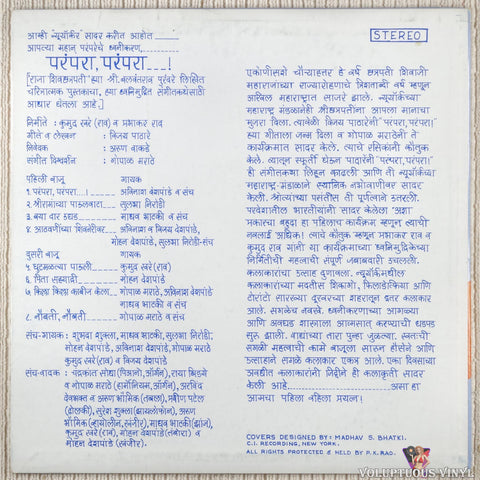 आम्ही न्यूयॉर्कर सादर करीत आहोत
आपल्या महान् परंपरेचे ध्वनीकरण,
"परंपरा, परंपरा ---!
[राजा शिवछत्रपती' ह्या श्री. बळवंतराव पुरंदरे लिखित
चरित्रात्मक पुस्तकाचा, ह्या ध्वनिमुद्रित संगीतकथेसाठी
आधार घेतला आहे.]
निर्मिते : कुमुद खरे (राव) व प्रभाकर राव
गीते व लेखन : विजय पाठारे
निवेदक : अरुण वाकडे
संगीत दिग्दर्शन : गोपाळ मराठे
पहिली बाजू गायक
१. परंपरा, परंपरा....! अविनाश देशपांडे व संच
२. श्रीरामांच्या पाऊलवाटा सुलभा निरोडी
३. बया दार उघड माधव भाटकी व संच
४. आठवणींच्या शिवनेरीवर अविनाश व विजय देशपांडे,
मोहन देशपांडे, सुलभा निरोडी-संच
दुसरी बाजू गायक
५. घुटमळल्या पाऊली कुमुद खरे (राव)
६. पिता सह्याद्री मोहन देशपांडे
७. किल्ला किल्ला काबीज केला गोपाळ मराठे, अविनाश देशपांडे
माधव भाटकी व संच
८. नौबती, नौबती गोपाळ मराठे व संच
संच-गायक : शुभदा शुक्ला, माधव भाटकी, सुलभा निरोडी,
मोहन देशपांडे, अविनाश देशपांडे, गोपाळ मराठे
कुमुद खरे (राव) व विजय देशपांडे
संच-वादक : चंद्रकांत सोधा (पिआनो, ऑर्गन), राया भिडये
व गोपाळ मराठे (हार्मोनियम, ऑर्गन), अरविंद
देवभक्त व अरुण भौमिक (तबला), प्रवीण पटेल
(ढोलकी), सुरेश शुक्ला (झायलोफोन), अरुण
भौमिक (व्हायोलीन, खंजीर), माधव भाटकी (झांज),
कुमुद खरे (राव), मोहन देशपांडे (तंबोरा) व
मोहन देशपांडे (खंजीर).
STEREO
एकोणीसशे चौऱ्याहत्तर हे वर्ष छत्रपती शिवाजी
महाराजांच्या राज्यारोहणाचे त्रिशताब्दी वर्ष म्हणून
अखिल महाराष्ट्रात साजरे झाले. न्यूयॉर्कच्या
महाराष्ट्र मंडळानेही श्रीछत्रपतींना आपला मानाचा
मुजरा दिला. त्यावेळी विजय पाठारेंनी "परंपरा, परंपरा!"
ह्या गीताला जन्म दिला व गोपाळ मराठेंनी ते
कार्यक्रमात सादर केले. त्याचे रसिकांनी कौतुक
केले. त्यातून स्फूर्ती घेऊन पाठारेंनी "परंपरा, परंपरा!"
ही संगीतकथा लिहून काढली आणि ती न्यूयॉर्कच्या
महाराष्ट्र-मंडळाने स्थानिक नभोवाणीवर सादर
केली. श्रोत्यांच्या पसंतीस ती पूर्णत्वाने उतरली.
परदेशातील भारतीयांनी सादर केलेला 'अशा
प्रकारचा बहुदा हा पहिलाच कार्यक्रम म्हणून त्याची
नवलाई अधिक! त्याचे कौतुक म्हणून प्रभाकर राव व
कुमुद राव यांनी या कार्यक्रमाच्या ध्वनिमुद्रिकेच्या
निर्मितीची महत्वाची संपूर्ण जबाबदारी उचलली.
कलाकारांचा उत्साह दुणावला. न्यूयॉर्कमधील
कलाकारांच्या मदतीस शिकागो, फिलाडेल्फिया आणि
टोरांटो सारख्या दूरवरच्या शहरातून इतर कलाकार
आले. सगळेच नवखे. ध्वनीकरणाच्या आगळ्या
आणि अवघड शास्त्राला आत्मसात् करण्याची धडपड
सुरू झाली. वाद्यांच्या तारा पुन्हा जुळल्या. स्वतःची
सगळी महत्वाची कामे बाजूला सारून हौसेने आणि
उत्साहाने सगळे कलाकार एकत्र आले. एका दिवसाच्या
अवधीत कलाकारांनी जिद्दीने ही कलाकृती सादर
केली आहे असा हा
आमचा पहिला वहिला प्रयत्न!
COVERS DESIGNED BY: MADHAV S. BHATKI.
C.I. RECORDING, NEW YORK.
ALL RIGHTS PROTECTED & HELD BY P.K. RAO.
VOLUPTUOUS VINYL